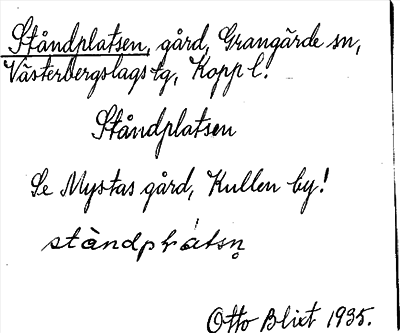 Ståndplatsen, gård, Grangärde sn,
Västerbergslags tg, Kopp l.
Ståndplatsen
Se Mystas gård, Kullen by!
stàndplátsn̥
Otto Blixt 1935.